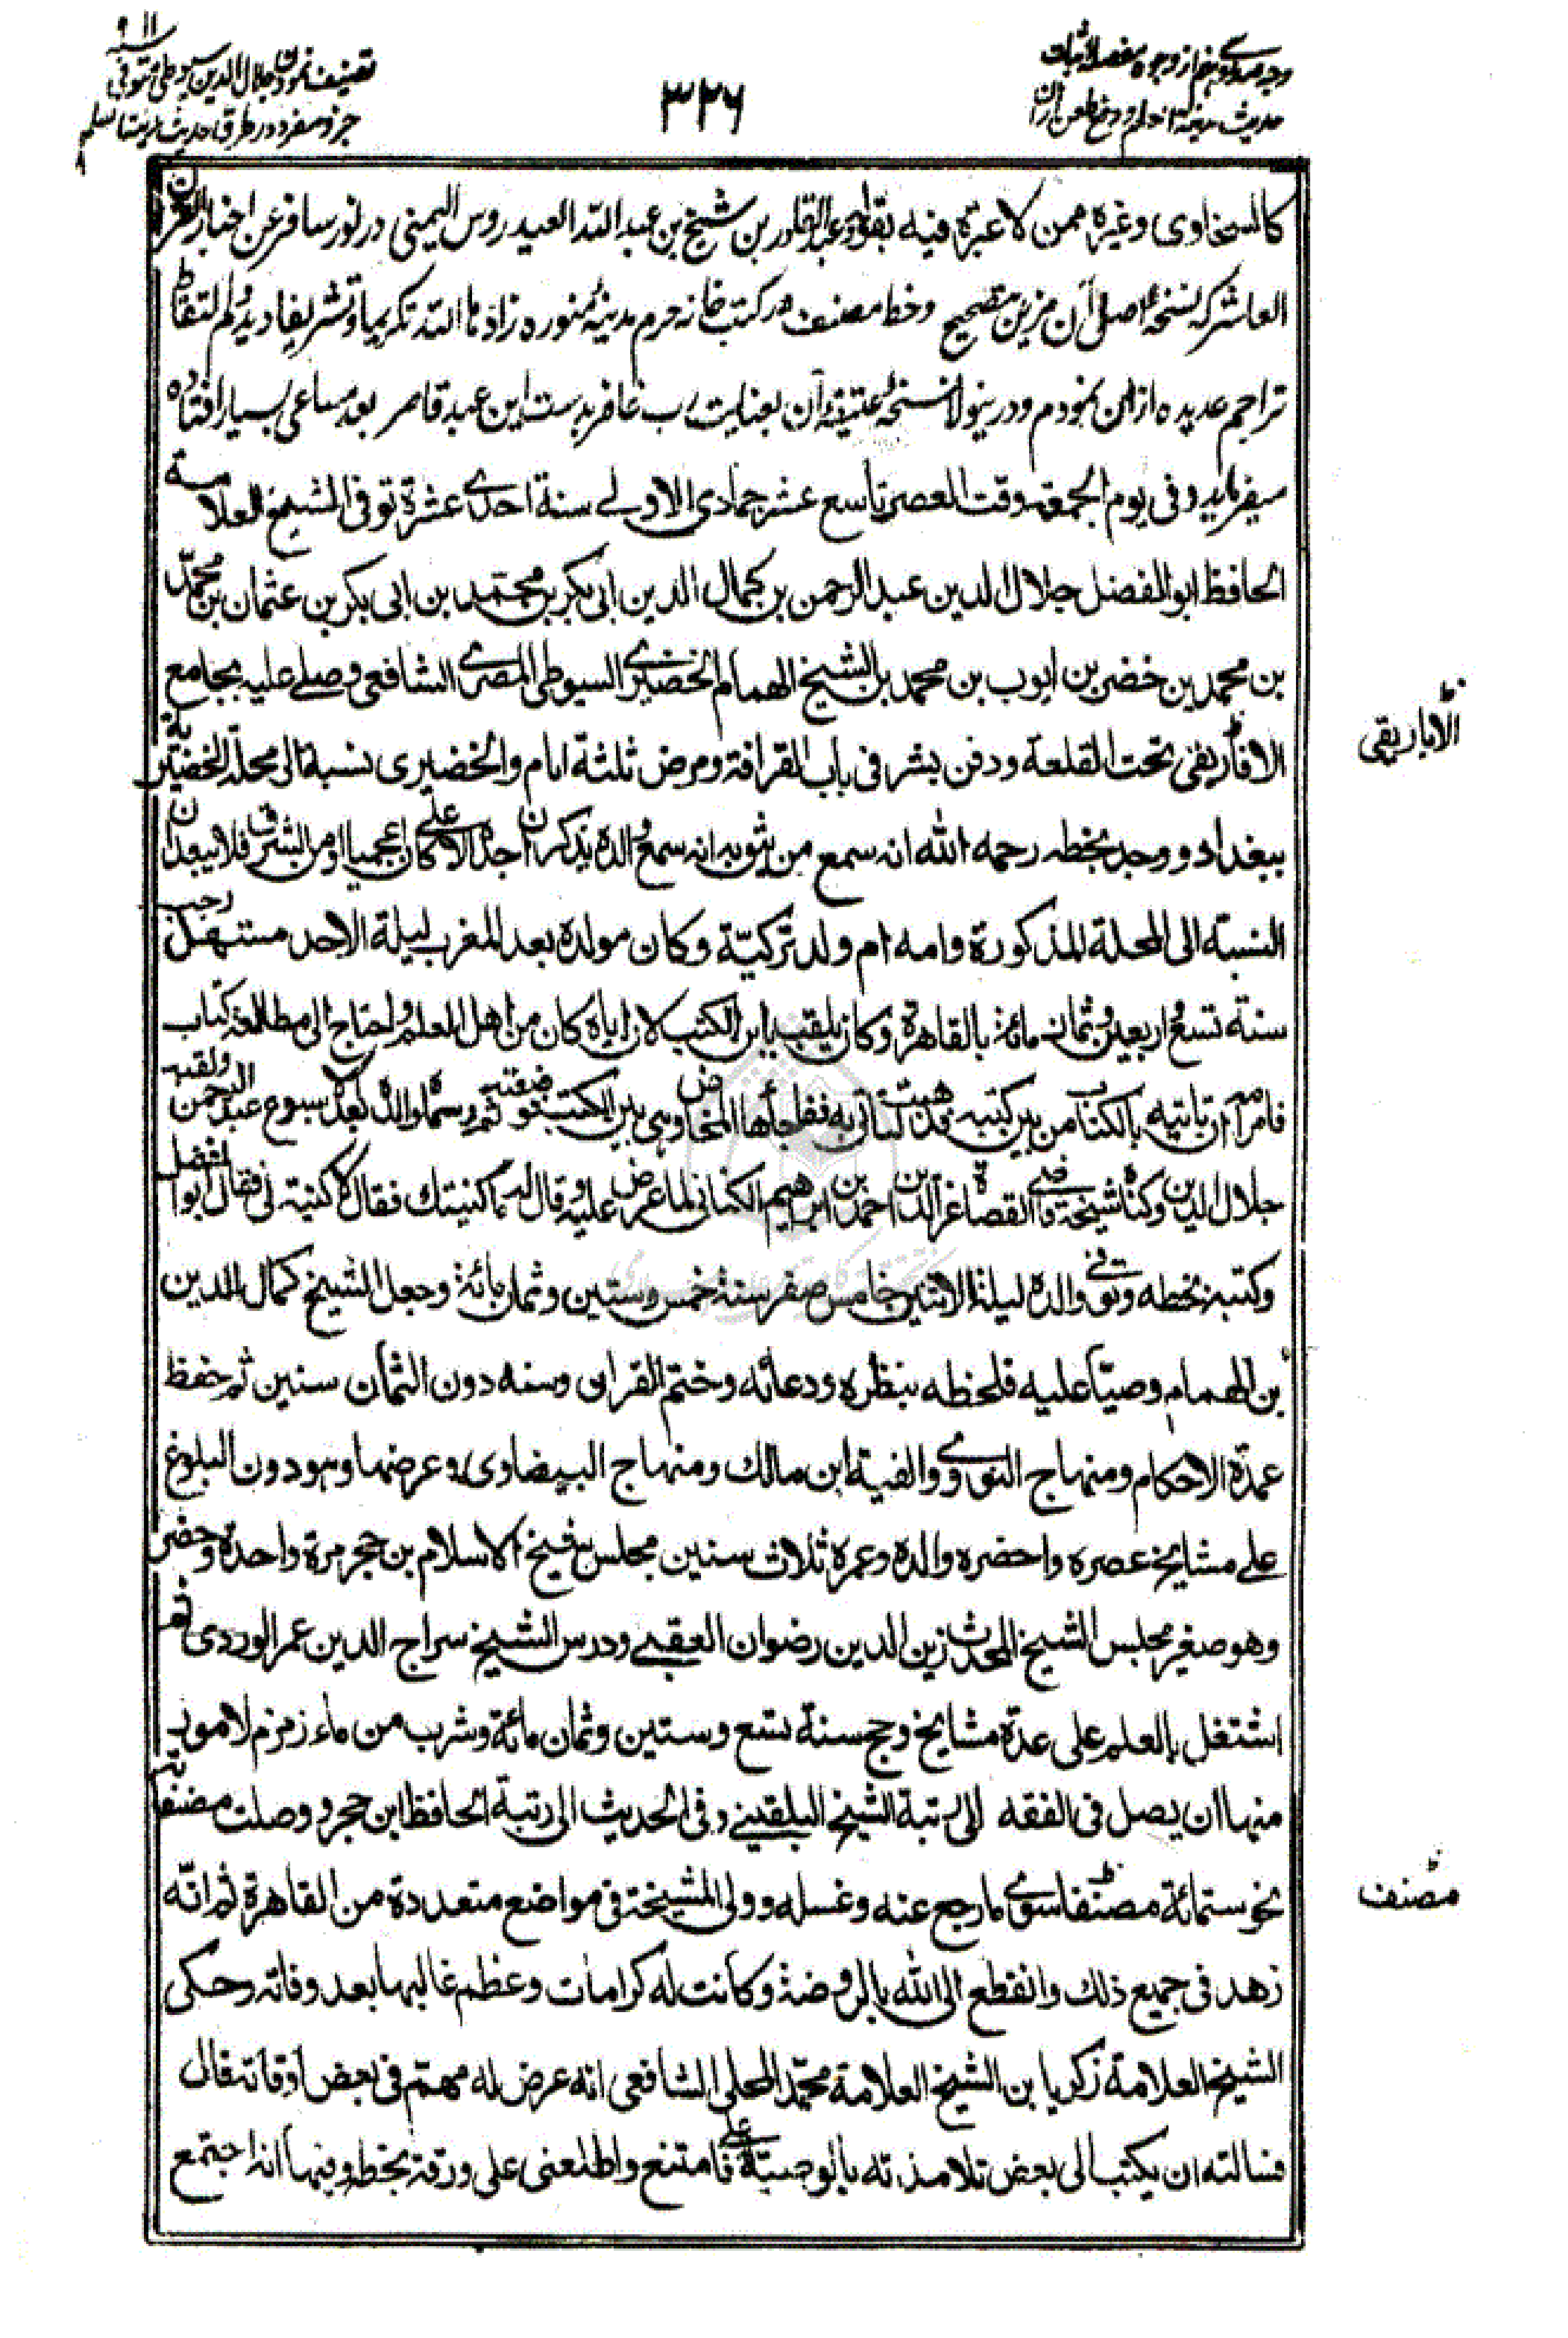 تصنیف نمودن جلال الدین سیوطی متوفی سنه ٩١١
جزو مفرد در طرق حدیث مدینة العلم
٣٢٦
وجه صدوهم از وجوه مفصله اثبات
حدیث مدینة العلم و دفع طعن ازان
کالسخاوی وغیره ممن لا عبرة فیه بقوله وعبد القادر بن شیخ بن عبد الله العیدروس الیمنی در نور سافر عن اخبار القرن
العاشر که نسخهٔ اصل آن مزین بتصحیح وخط مصنف در کتب خانه حرم مدینهٔ منوره زادها الله تکریما وتشریفا دیدم والتقاط
تراجم عدیده ازان نمودم ودرینولا نسخهٔ عتیقهٔ آن بعنایت رب غافر بدست این عبد قاصر بعد مساعی بسیار افتاده
میفرماید وفی یوم الجمعة وقت العصر تاسع عشر جمادی الاولی سنة احدی عشرة توفی الشیخ العلامة
الحافظ ابو الفضل جلال الدین عبد الرحمن بن کمال الدین ابی بکر بن محمد بن ابی بکر بن عثمان بن محمد
بن محمد بن خضر بن ایوب بن محمد بن الشیخ الهمام الخضیری السیوطی المصری الشافعی وصلی علیه بجامع
الافاریقی تحت القلعة ودفن بشرقی باب القرافة ومرض ثلثة ایام والخضیری نسبة الی محلة الخضیریة
ببغداد ووجد بخطه رحمه الله انه سمع من یثق به انه سمع والده یذکر ان جده الاعلی کان عجمیا او من الشرق فلا یبعد ان
النسبة الی المحلة المذکورة وامه ام ولد ترکیّة وکان مولده بعد المغرب لیلة الاحد مستهل رجب
سنة تسع واربعین وثمان مائة بالقاهرة وکان یلقب بابن الکتب لان اباه کان من اهل العلم واحتاج الی مطالعة کتاب
فامر امه ان تاتیه بالکتاب من بین کتبه فذهبت لتاتی به فجأها المخاض وهی بین الکتب فوضعته ثم سماه والده بعد الاسبوع عبد الرحمن ولقبه
جلال الدین وکناه شیخه قاضی القضاة عز الدین احمد بن ابراهیم الکنانی لما عرض علیه وقال له ما کنیتک فقال لا کنیة لی فقال ابو الفضل
وکتبه بخطه وتوفی والده لیلة الاثنین خامس صفر سنة خمس وستین وثمان مائة وجعل الشیخ کمال الدین
بن الهمام وصیّا علیه فلحظه بنظره ودعائه وختم القران وسنه دون الثمان سنین ثم حفظ
عمدة الاحکام ومنهاج النووی والفیة ابن مالک ومنهاج البیضاوی وعرضها وهو دون البلوغ
علی مشایخ عصره واحضره والده وعمره ثلاث سنین مجلس شیخ الاسلام بن حجر مرة واحدة وحضر
وهو صغیر مجلس الشیخ المحدث زین الدین رضوان العقبی ودرس الشیخ سراج الدین عمر الوردی ثم
اشتغل بالعلم علی عدة مشایخ وحج سنة تسع وستین وثمان مائة وشرب من ماء زمزم لامور
منها ان یصل فی الفقه الی رتبة الشیخ البلقینی وفی الحدیث الی رتبة الحافظ ابن حجر ووصلت مصنفاته
نحو ستمائة مصنفا سوی ما رجع عنه وغسله وولی المشیخة فی مواضع متعددة من القاهرة ثم انه
زهد فی جمیع ذلک وانقطع الی الله بالروضة وکانت له کرامات وعظم غالبها بعد وفاته وحکی
الشیخ العلامة زکریا بن الشیخ العلامة محمد المحلی الشافعی انه عرض له مهم فی بعض اوقاته قال
فسالته ان یکتب الی بعض تلامذته بالوصیة علی فامتنع واطلعنی علی ورقة بخطه وفیها انه اجتمع
الاباریقی
مصنف